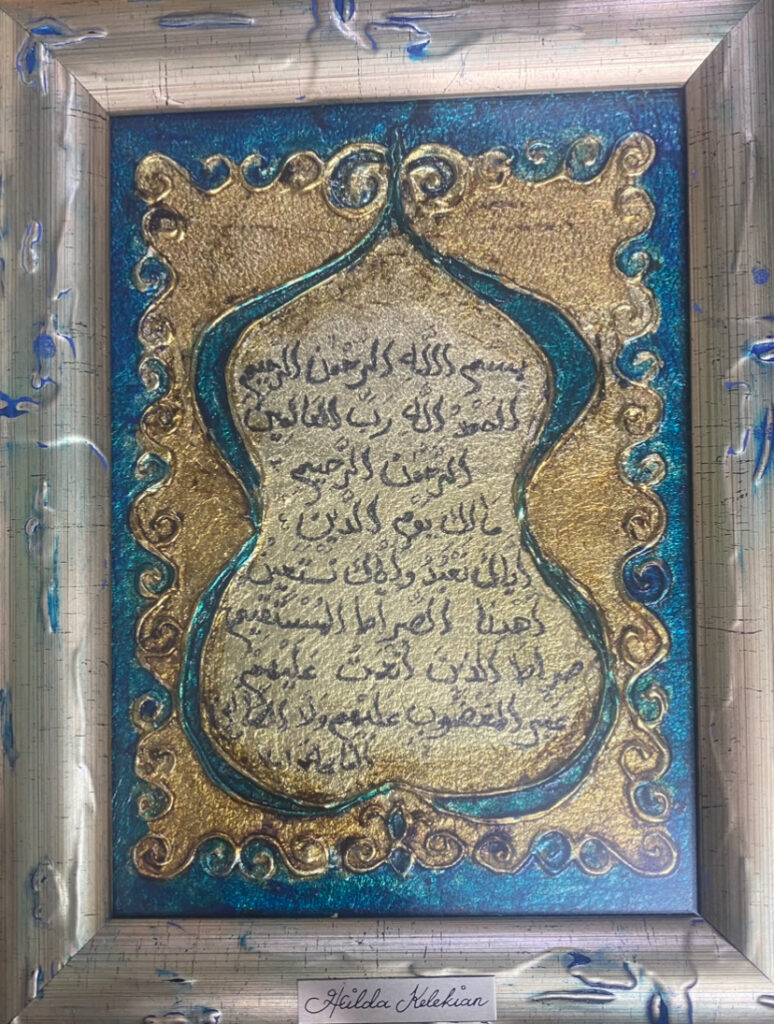 بسم الله الرحمن الرحيم
الحمد الله رَبِّ العَالمين
الرَّحْمٰن الرَّحيم
مَالك يَوْم الدِّين
إياك نَعْبُدُ وإيَّاك نَسْتَعين
اهْدنا الصِّراط المُسْتَقيم
صِراط الذين أنعمت عَليْهِمْ
غير المغضوب عَليْهم ولَا الضالين
Hilda Kelekian